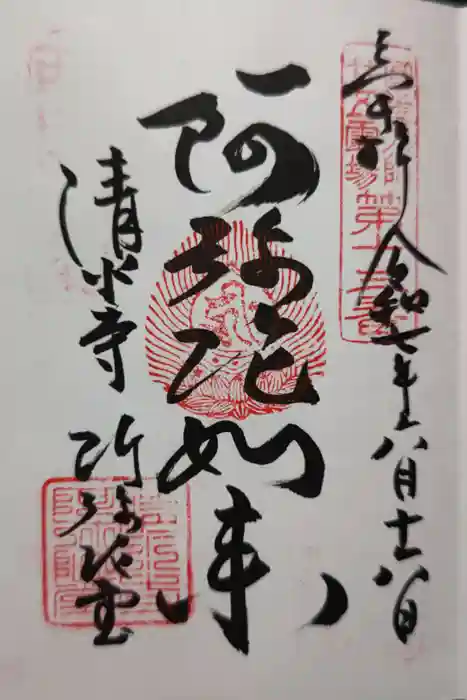 奉拝 令和七年八月十八日
霊場第十三番
阿弥陀如来
清水寺 阿弥陀堂